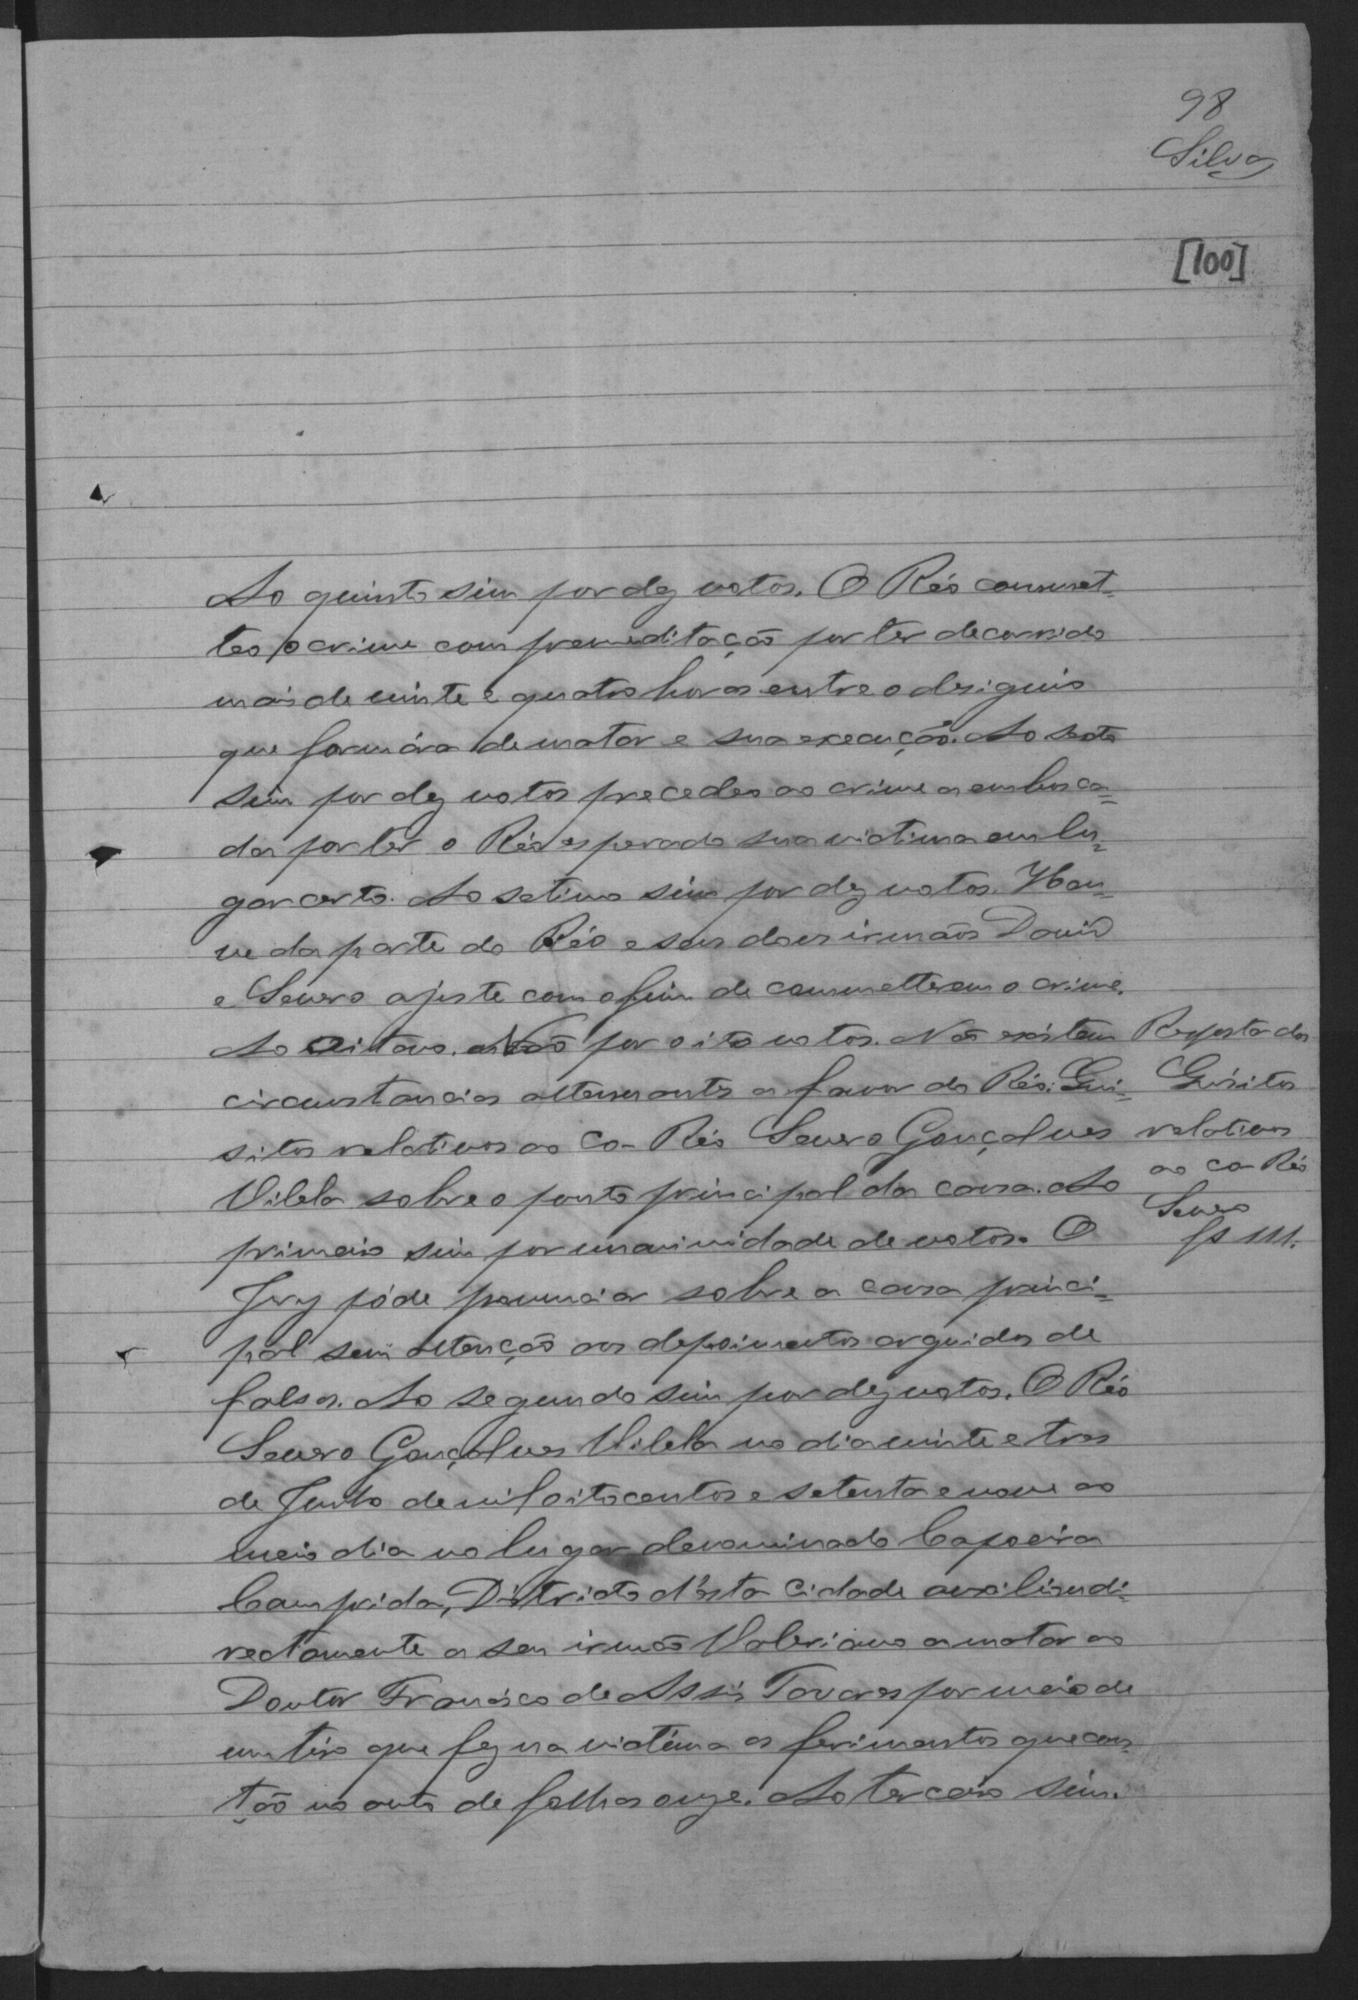 98
Silva
[100]
Ao quinto sim por dez votos. O Réo commet-
teo o crime com premeditação por ter decorrido
mais de vinte e quatro horas entre o designio
que formára de matar e sua execução. Ao sexto
sim por dez votos precedeo ao crime a embosca=
da por ter o Réo esperado sua victima em lu=
gar certo. Ao setimo sim por dez votos. Hou=
ve da parte do Réo e seus dous irmãos David
e Severo ajuste com o fim de commetterem o crime.
Ao Oitavo. Não por oito votos. Não existem
circunstancias attenuantes a favor do Réo. Qui=
sitos relativos ao Co-Réo Severo Gonçalves
Vilela sobre o ponto principal da causa. Ao
primeiro sim por unanimidade de votos. O
Jury póde pronunciar sobre a causa princi=
pal sem attenção aos depoimentos arguidos de
falsos. Ao segundo sim por dez votos. O Réo
Severo Gonçalves Vilela no dia vinte e tres
de Junho de mil oitocentos e setenta e nove ao
meio dia no lugar denominado Capoeira
Comprida, Districto d'esta Cidade auxiliou di=
rectamente a seu irmão Valeriano a matar ao
Doutor Francisco de Assis Tavares por meio de
um tiro que fez na victima os ferimentos que cons=
tão no auto de folhas onze. Ao terceiro sim.
Resposta dos
Quisitos
relativos
ao co-Réo
Severo
fs 111.